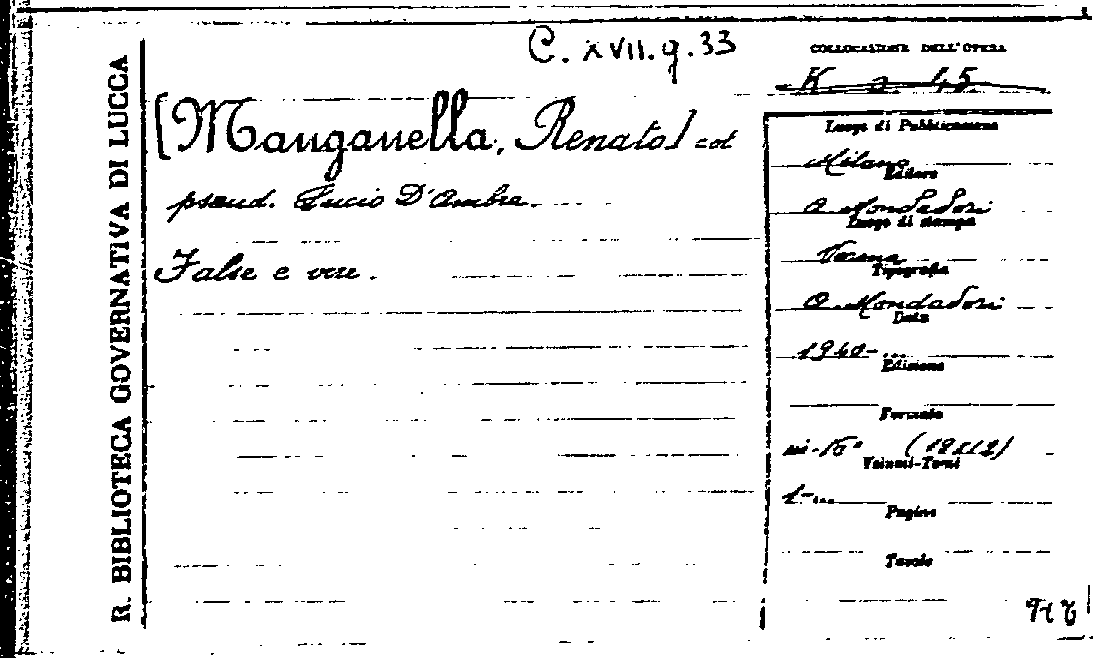 R. BIBLIOTECA GOVERNATIVA DI LUCCA
C. XVII. g. 33
[Manganella, Renato] col
pseud. Lucio D'Ambra.
False e vere.
COLLOCAZIONE DELL'OPERA
K 2 45
Luogo di Pubblicazione
Milano
Editore
A. Mondadori
Luogo di stampa
Verona
Tipografia
A. Mondadori
Data
1940-...
Edizione
Formato
in-16°
Volumi-Tomi
1-...
Pagine
Tavole